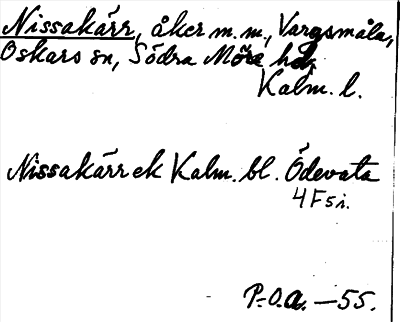 Nissakärr, åker m.m., Vargsmåla,
Oskars sn, Södra Möre hd,
Kalm. l.
Nissakärr ek Kalm. bl. Ödevata
4F5i.
P.O.A. — 55.